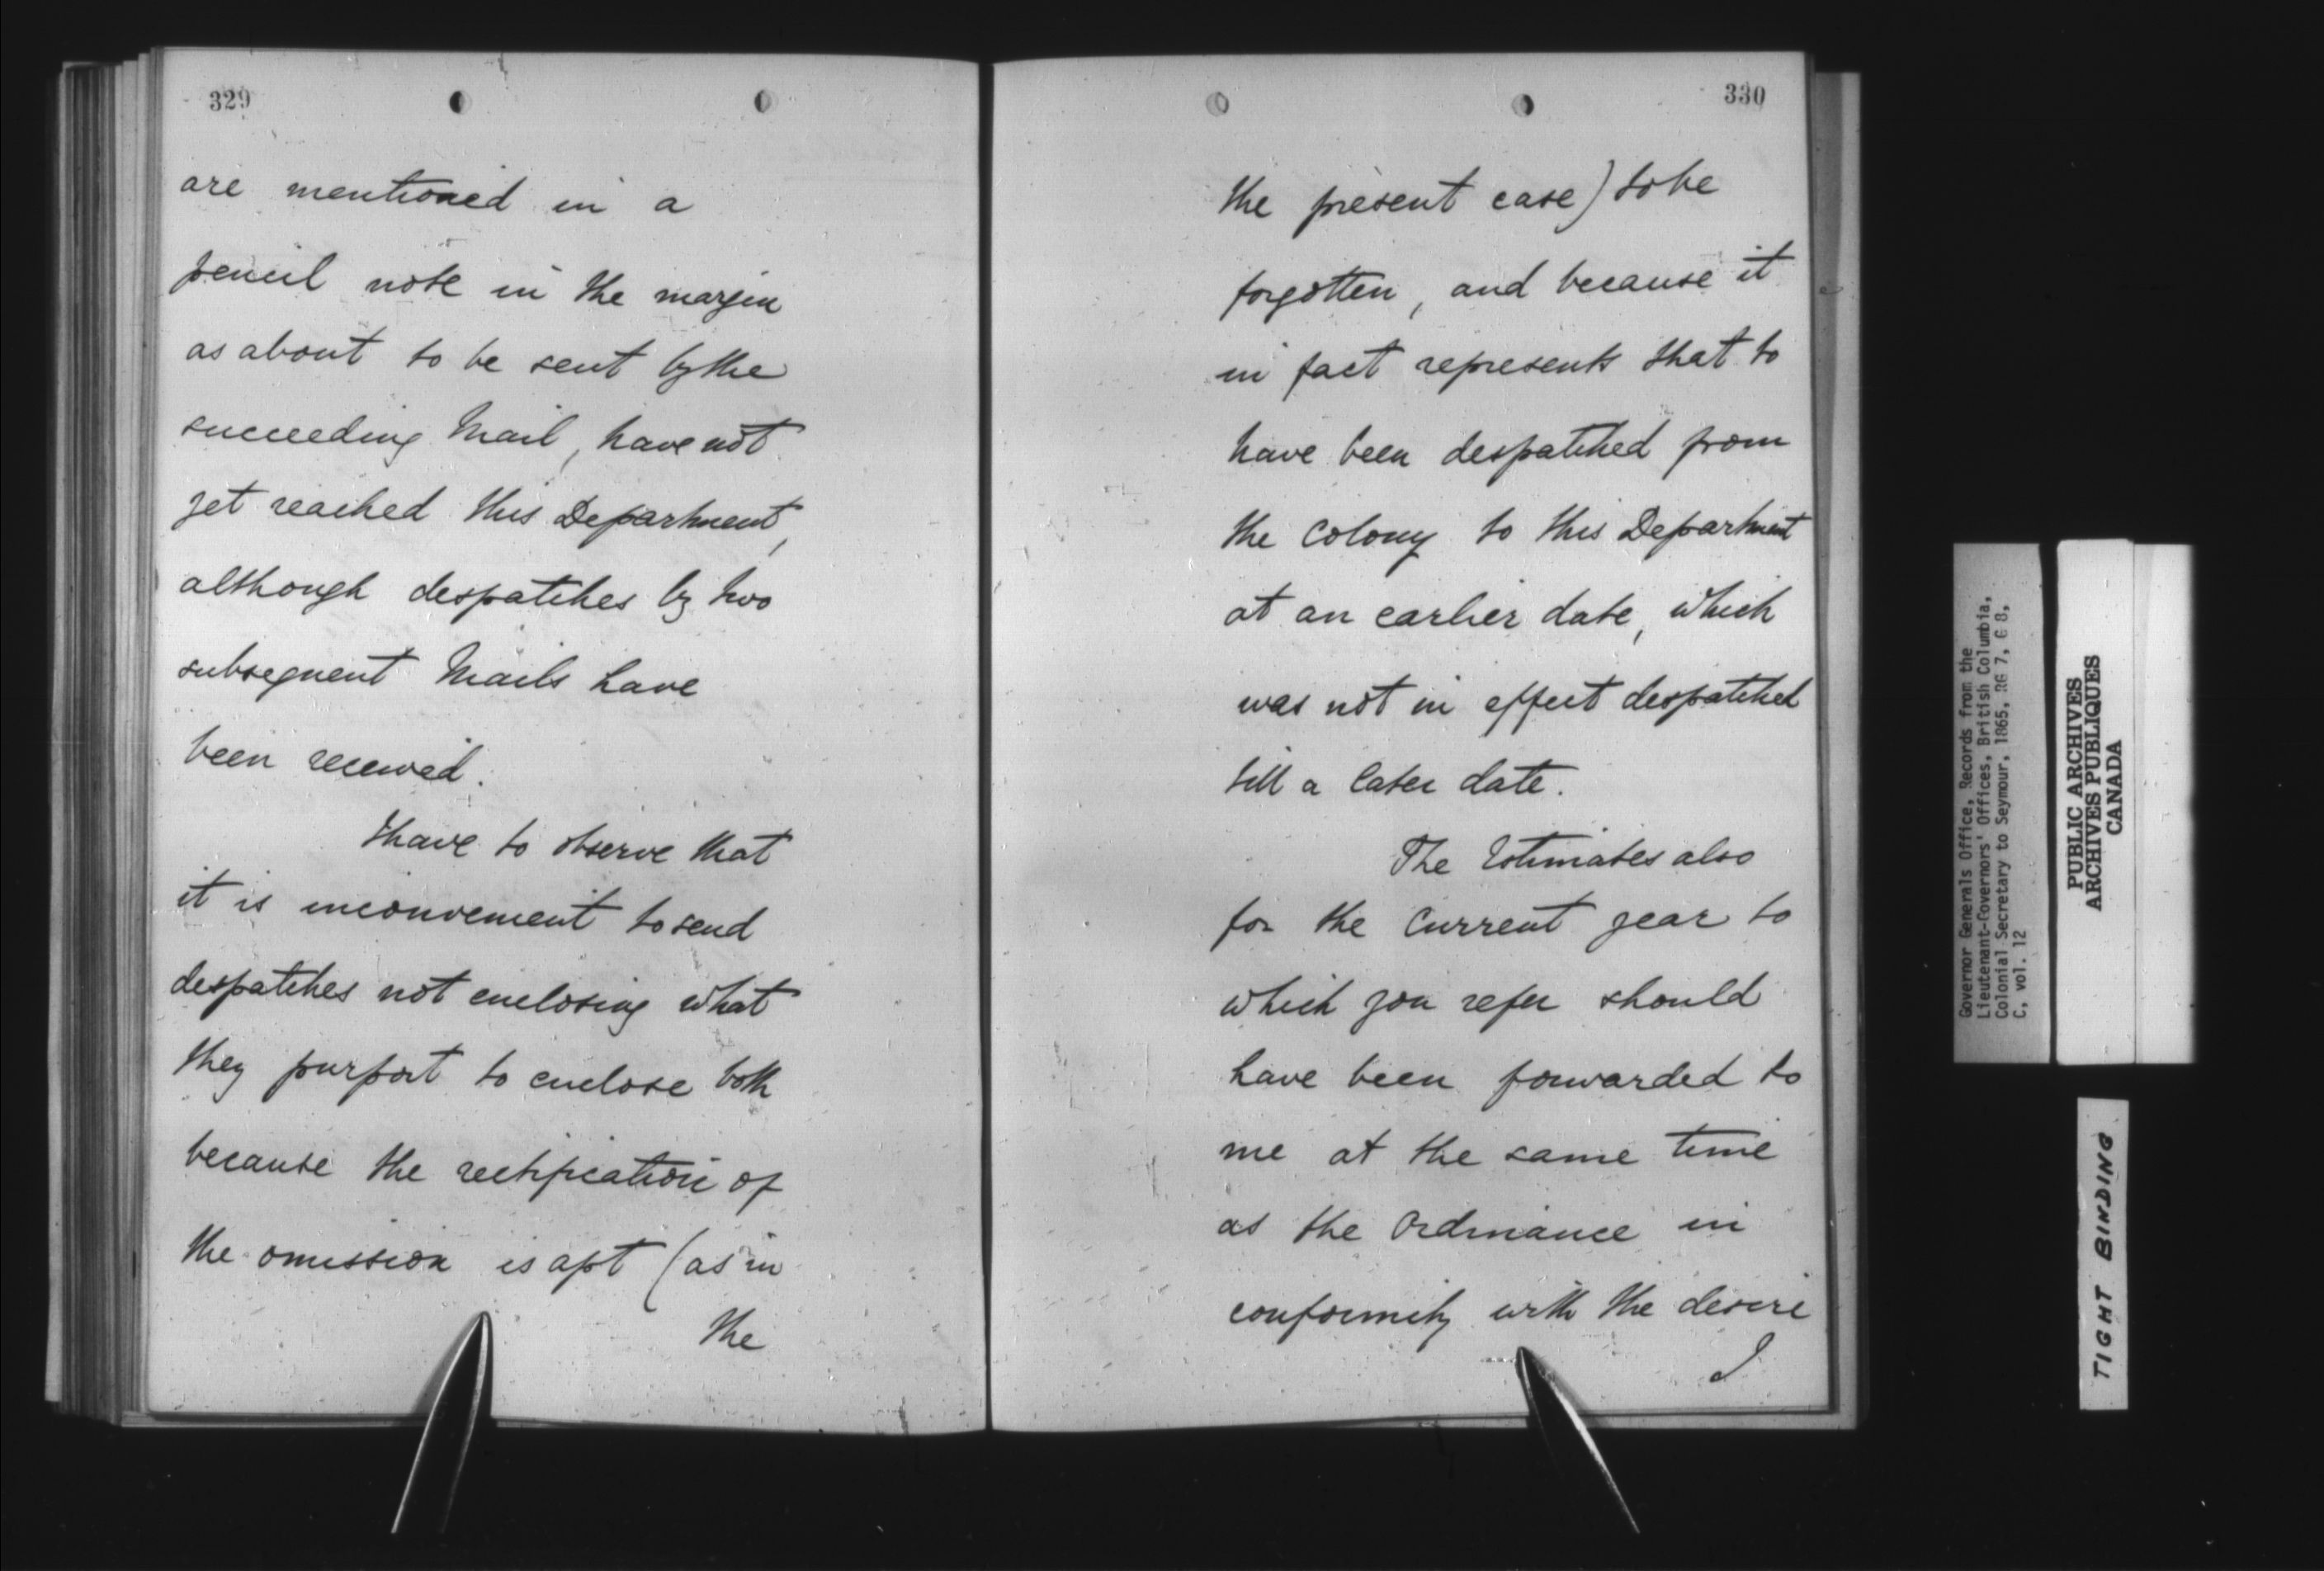 329
are mentioned in a
pencil note in the margin
as about to be sent by the
succeeding Mail, have not
yet reached this Department,
although despatches by two
subsequent Mails have
been received.
I have to observe that
it is inconvenient to send
despatches not enclosing what
they purport to enclose both
because the rectification of
the omission is apt (as in
the
330
the present case) to be
forgotten, and because it
in fact represents that to
have been despatched from
the Colony to this Department
at an earlier date, which
was not in effect despatched
till a later date.
The Estimates also
for the Current year to
which you refer should
have been forwarded to
me at the same time
as the Ordinance in
conformity with the desire
I
Governor Generals Office, Records from the
Lieutenant-Governors' Offices, British Columbia,
Colonial Secretary to Seymour, 1865, RG 7, G 8,
C, vol. 12
PUBLIC ARCHIVES
ARCHIVES PUBLIQUES
CANADA
TIGHT BINDING